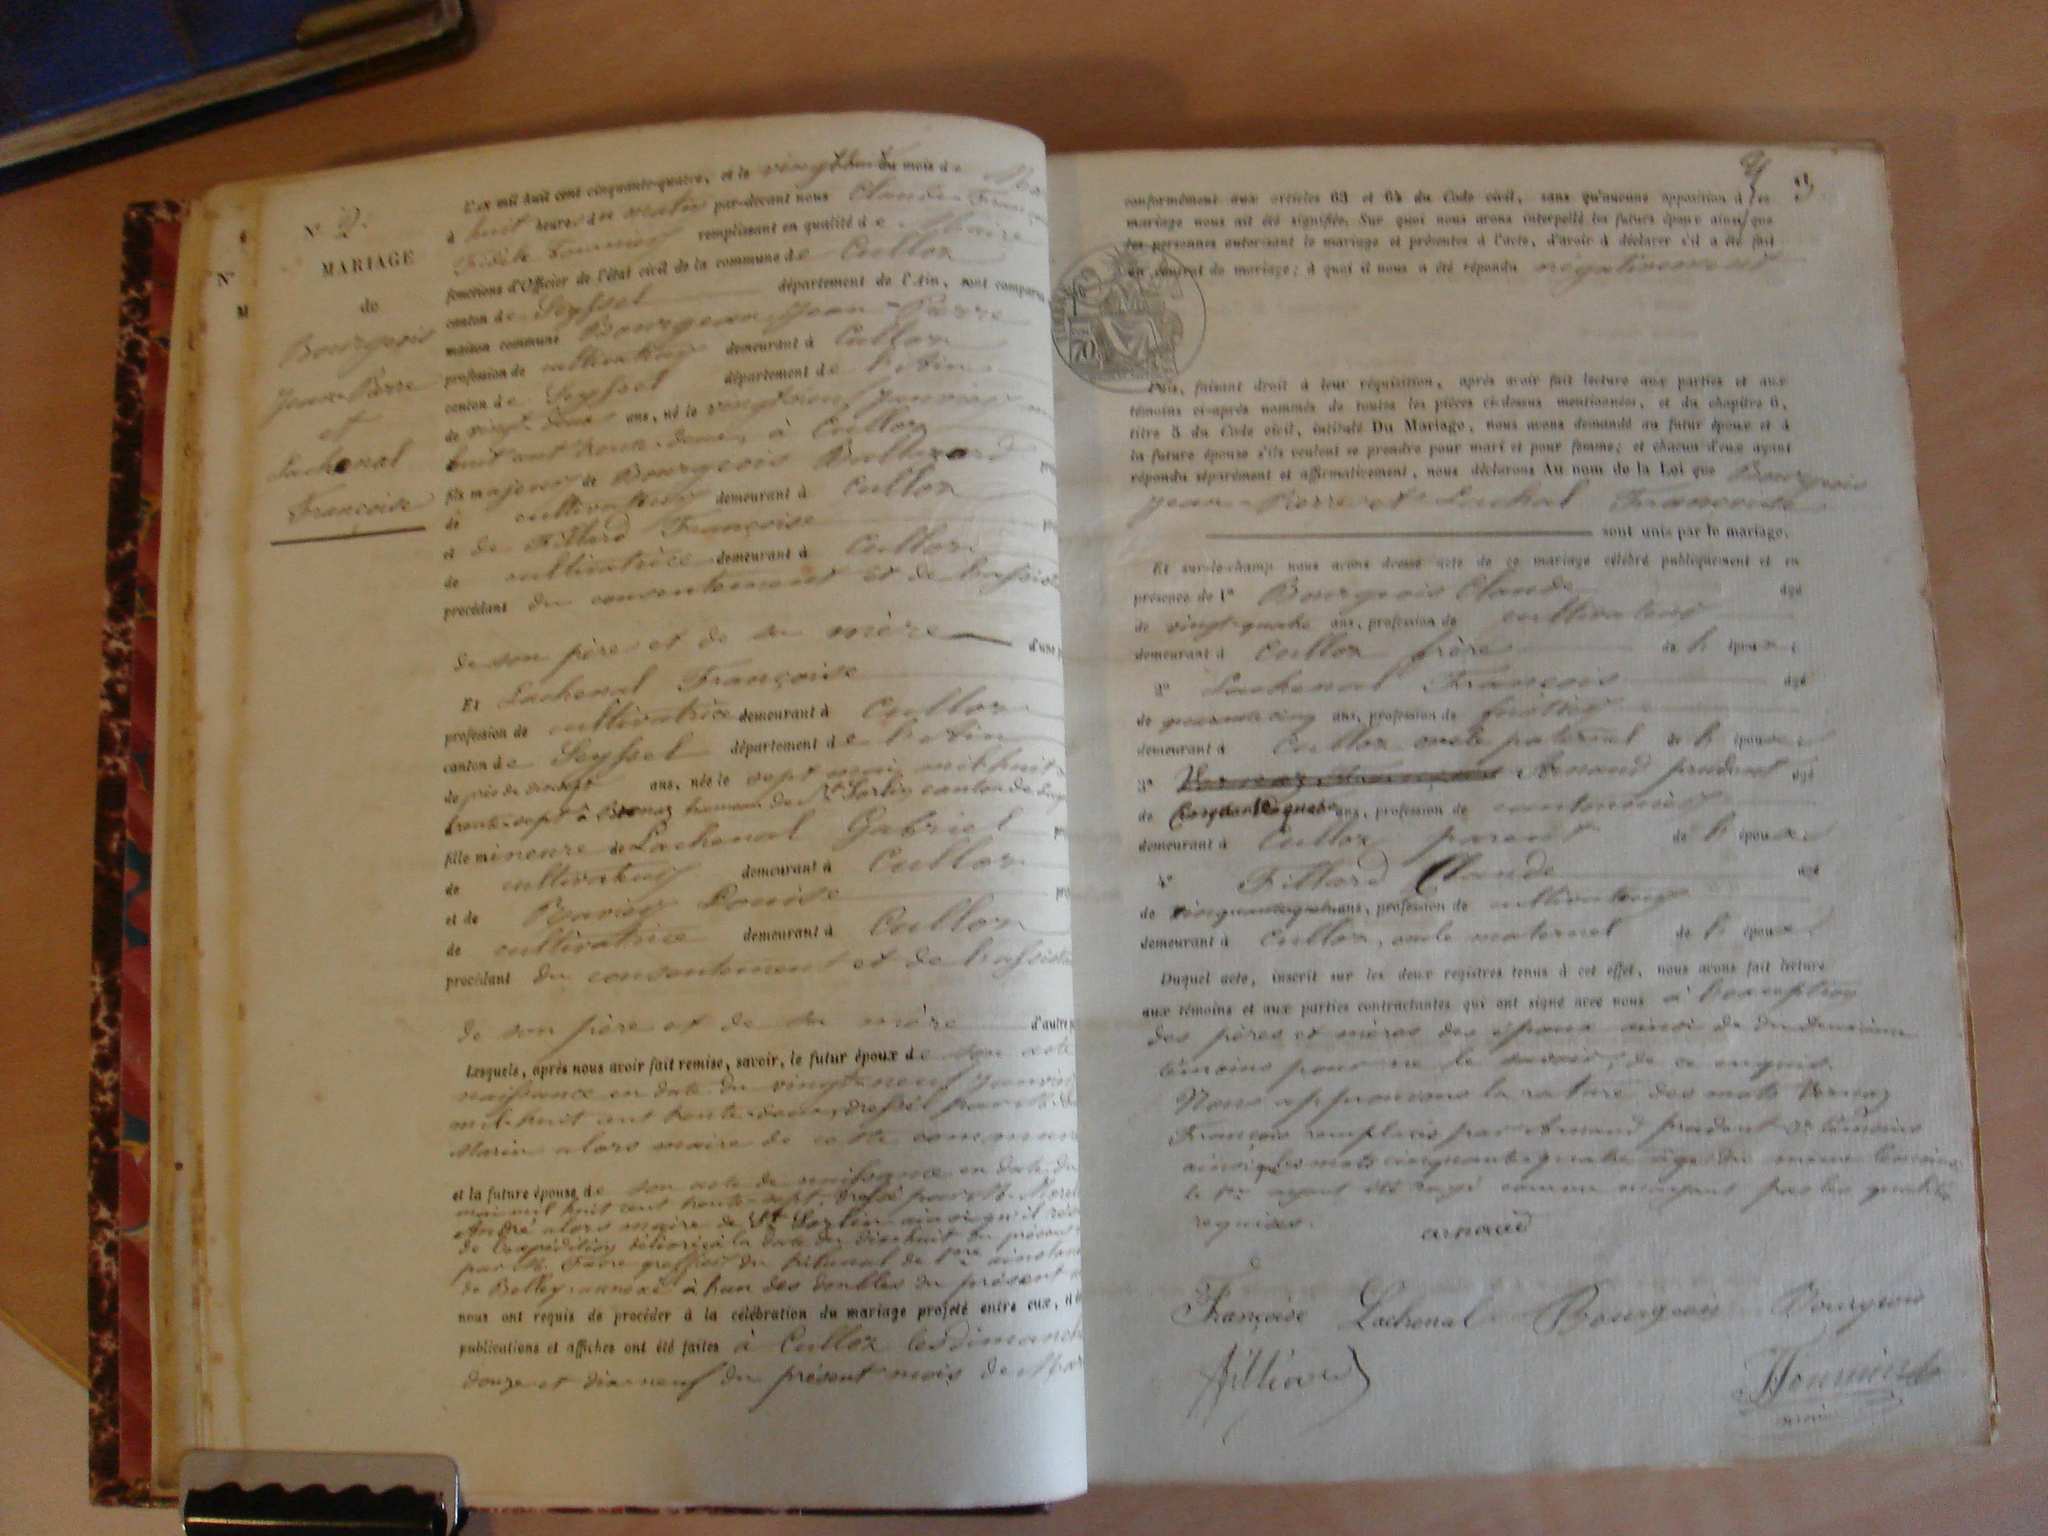 N° 9.
MARIAGE
de
Bourgeois
Jean-Pierre
et
Lachenal
Françoise
L'an mil huit cent cinquante-quatre, et le du mois de
à huit heures du matin par-devant nous Claude François
Fidèle Fournier remplissant en qualité de Maire
fonctions d'Officier de l'état civil de la commune de Culloz
canton de Seyssel département de l'Ain, sont comparus
maison commune Bourgeois Jean-Pierre
profession de cultivateur demeurant à Culloz
canton de Seyssel département de l'Ain
de vingt-deux ans, né le vingt neuf janvier
huit cent trente-deux, à Culloz
fils majeur de Bourgeois
de cultivateur demeurant à Culloz
et de Fillard Françoise
de cultivatrice demeurant à Culloz
procédant du consentement et de
de son père et de sa mère d'une
Et Lachenal Françoise
profession de cultivatrice demeurant à Culloz
canton de Seyssel département de l'Ain
de près de dix sept ans, née le sept mai mil huit
trente-sept à hameau de St Sorlin canton de
fille mineure de Lachenal Gabriel
de cultivateur demeurant à Culloz
et de Louise
de cultivatrice demeurant à Culloz
procédant du consentement et de
de son père et de sa mère d'autre
Lesquels, après nous avoir fait remise, savoir, le futur époux de son acte
naissance en date du vingt-neuf janvier
mil-huit cent trente-deux, dressé par M.
Marin alors maire de cette commune
et la future épouse de son acte de naissance en date du
mai mil huit cent trente-sept, dressé par M.
André alors maire de St Sorlin ainsi qu'il
de l'expédition délivrée à la date du dix-huit du présent
par M. Favre greffier du tribunal de 1ère instance
de Belley annexé à l'un des doubles du présent
nous ont requis de procéder à la célébration du mariage projeté entre eux,
publications et affiches ont été faites à Culloz les dimanches
douze et dix-neuf du présent mois de Mars
conformément aux articles 63 et 64 du Code civil, sans qu'aucune opposition à ces
mariage nous ait été signifiée. Sur quoi nous avons interpellé les futurs époux ainsi que
les personnes autorisant le mariage et présentes à l'acte, d'avoir à déclarer s'il a été fait
un contrat de mariage; à quoi il nous a été répondu négativement
Puis, faisant droit à leur réquisition, après avoir fait lecture aux parties et aux
témoins ci-après nommés de toutes les pièces ci-dessus mentionnées, et du chapitre 6,
titre 5 du Code civil, intitulé Du Mariage, nous avons demandé au futur époux et à
la future épouse s'ils veulent se prendre pour mari et pour femme; et chacun d'eux ayant
répondu séparément et affirmativement, nous déclarons Au nom de la Loi que Bourgeois
Jean-Pierre et Lachal Françoise
sont unis par le mariage.
Et sur-le-champ nous avons dressé acte de ce mariage célébré publiquement et en
présence de 1° Bourgeois Claude âgé
de vingt-quatre ans, profession de cultivateur
demeurant à Culloz frère de l' époux;
2° Lachenal François âgé
de quarante cinq ans, profession de
demeurant à Culloz oncle paternel de l' épouse;
3° Vernaz François Arnaud prudent âgé
de Cinquante quatre ans, profession de cantonnier
demeurant à Culloz parent de l' épouse;
4° Fillard Claude âgé
de ans, profession de cultivateur
demeurant à Culloz, oncle maternel de l' époux
Duquel acte, inscrit sur les deux registres tenus à cet effet, nous avons fait lecture
aux témoins et aux parties contractantes qui ont signé avec nous à l'exception
des pères et mères des époux ainsi de du deuxième
témoins pour ne le savoir, de ce enquis.
Nous approuvons la rature des mots Vernaz
François remplacés par Arnaud prudent 3e témoins
ainsi que les mots cinquante quatre âge du même témoins
le 1er ayant été rayé comme n'ayant pas les qualités
requises.
arnaud
Françoise Lachenal Bourgeois Bourgeois
filliard
Fournier
maire